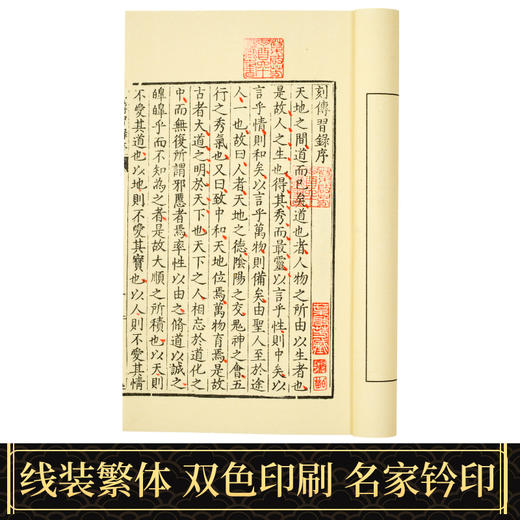 刻傳習錄序
天地之間道而已矣道也者人物之所由以生者也
是故人之生也得其秀而最靈以言乎性則中矣以
言乎情則和矣以言乎萬物則備矣由聖人至於途
人一也故曰人者天地之德陰陽之交鬼神之會五
行之秀氣也又曰致中和天地位焉萬物育焉是故
古者大道之明於天下也天下之人相忘於道化之
中而無復所謂邪慝者焉率性以由之脩道以誠之
皥皥乎而不知為之者是故大順之所積也以天則
不愛其道也以地則不愛其寶也以人則不愛其情
线装繁体 双色印刷 名家钤印